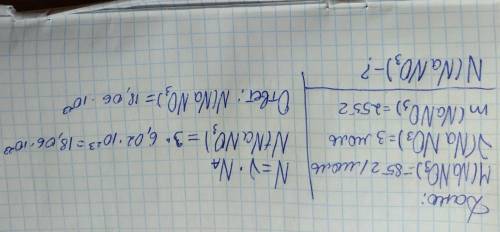 Дано:
M(NaNO₃)=85 г/моль
ν(NaNO₃)=3 моль
m(NaNO₃)=255 г
N(NaNO₃)-?
N=ν·Nₐ
N(NaNO₃)=3·6,02·10²³=18,06·10²³
Ответ: N(NaNO₃)=18,06·10²³